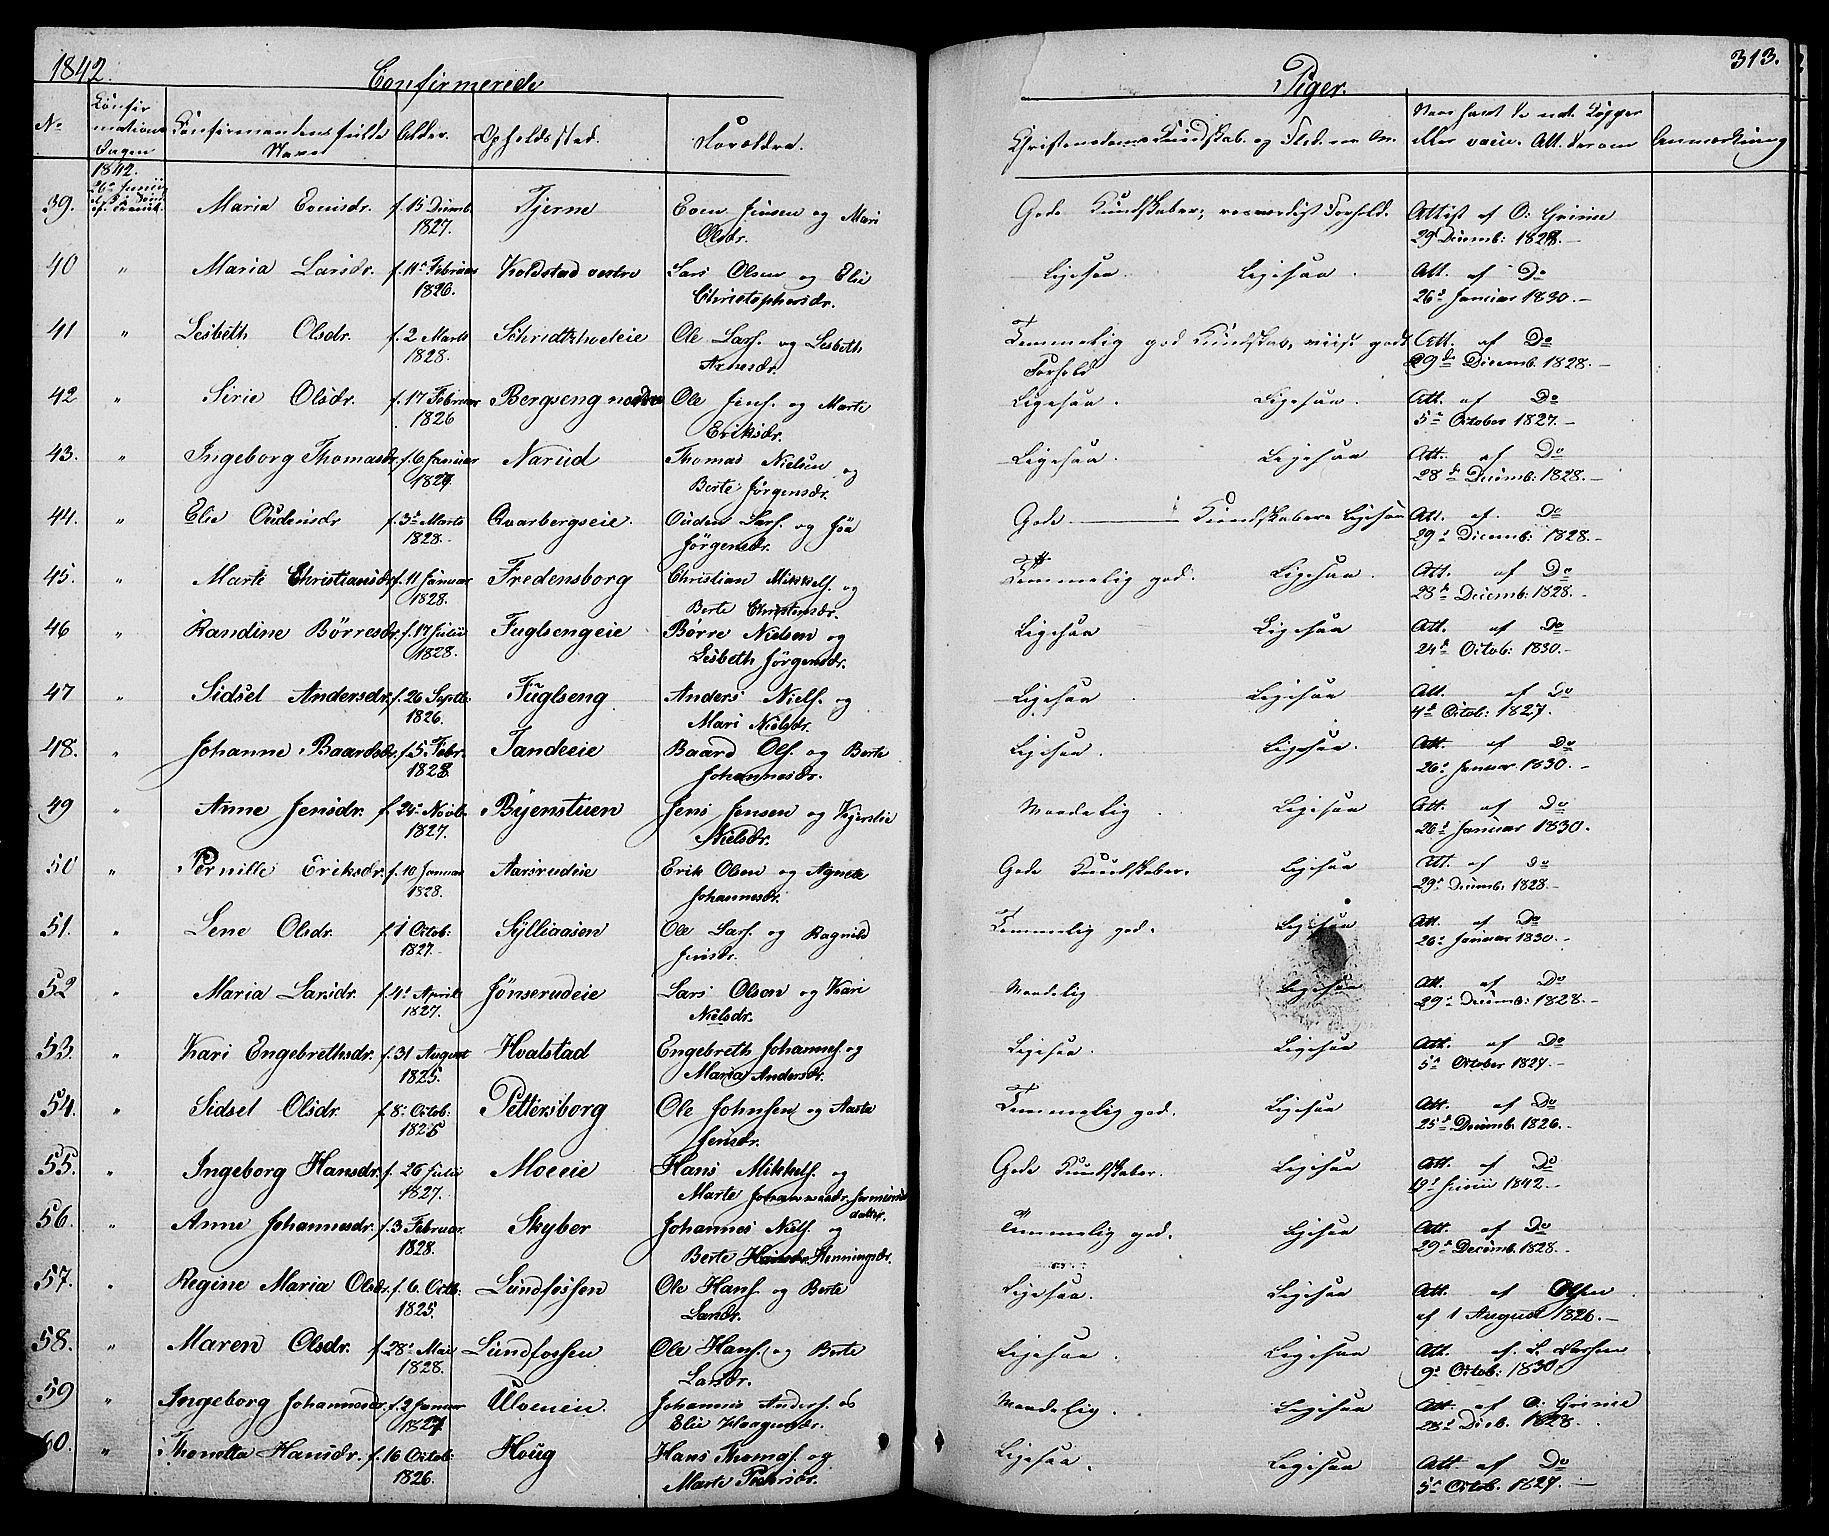 1842. Confirmerede Piger. 313.
No Confirmations Dagen Confirmandens fulde Navn Alder. Opholdssted. Forældre. Christendoms Kundskab. og Flid Anmærkning
1842.
39. Maria Evensdr. f. 15 Decemb. Tjerne Even Jensen og Mari Gode Kundskaber; Forhold. Attest af O: Grinie
1827. Olsdr. 29 Decemb: 1828.—
40 " Maria Larsdr. f. 11t Februar Koldstad vestre Lars Olsen og Elie Ligesaa. Ligesaa. Att. af Do
1826. Christophersdr. 26d Januar 1830.—
41 " Lisbeth Olsdr. f. 2 Marts Ole Lars. og Lisbeth Temmelig god Kundskab, godt Att. af Do
1828. Arnesdr. Forhold 29de Decemb. 1828.—
42 " Sirie Olsdr. f. 17 Februar Bergseng nordre Ole Jens. og Marte Ligesaa. Ligesaa. Att. af Do
1826 Eriksdr. 5te October 1827.—
43. " Ingeborg Thomasdr. f. 6 Januar Narud Thomas Nielsen og Ligesaa. Ligesaa Att. af Do
1827 Berte Jørgensdr. 28de Decemb: 1828.—
44. " Elie Oudensdr f. 3d Marts Qvarbergseie. Ouden Lars. og Gode Kundskaber Ligesaa Att. af. Do
1828.- Jørgensdr. 29d Decemb: 1828.—
45. " Marte Christiansdr. f. 11 Januar Fredensborg Christian Mikkels. og Temmelig god. Ligesaa. Att. af Do
1828. Berte Christensdr. 28de Decemb. 1828.-
46 " Randine Børresdr. f. 17 Julii Fuglsengeie Børre Nielsen og Ligesaa Ligesaa Att. af Do
1828. Lisbeth Jørgensdr. 24de Octob: 1830.-
47 " Sidsel Andersdr. f. 26 Septb: Fuglseng Anders Niels. og Ligesaa Ligesaa Att. af Do
1826. Mari Nielsdr. 4de Octob: 1827.
48. " Johanne Baardsdr. f. 5 Febr. Tandeeie Baard Ols. og Berte Ligesaa. Ligesaa. Att. af Do
1828 Johannesdr. 26d Januar 1830.—
49 " Anne Jensdr. f. 24d Novb. Bjenstuen Jens Jensen og Kjerstie Maadelig. Ligesaa Att. af Do
1827. Nielsdr. 26d Januar 1830.
50 " Pernille Eriksdr. f. 10 Januar Aarsrudeie Erik Olsen og Agnete Gode Kundskaber. Ligesaa Att. af Do
1828. Johannesdr. 29d Decemb: 1828.—
51. " Lene Olsdr. f. 1 Octob: Sylliaasen Ole Lars. og Ragnild Temmelig god. Ligesaa Att. af Do
1827.- Jensdr. 26d Januar 1830.-
52 " Maria Larsdr. f. 4d April Jønserudeie Lars Olsen og Kari Maadelig Ligesaa Att. af Do
1827. Nielsdr. 29d Decemb: 1828.—
53. " Kari Engebrethsdr. f. 31 August Hvalstad Engebreth Johannes. og Ligesaa. Ligesaa Att. af Do
1825. Maria Andersdr. 5d October 1827.—
54. " Sidsel Olsdr. f. 8d Octob: Pettersborg Ole Johnsen og Aarte Temmelig god. Ligesaa Att. af Do
1825 Jensdr. 25de Decemb. 1826.—
55. " Ingeborg Hansdr. f. 26 Julii Moeeie Hans Mikkels. og Gode Kundskaber. Ligesaa Att. af Do
1827. Marte Johannesdr. 19d Junii 1842.—
56. " Anne Johannesdr. f. 3 Februar. Skyber Johannes Niels. og Temmelig god. Ligesaa Att. af Do
1828. Berte Hansdr. Henningsdr. 29d Decemb. 1828.—
57. " Regine Maria Olsdr. f. 6. Octb: Lundfossen Ole Hans. og Berte Ligesaa. Ligesaa Att. af Olsen
1825. Larsdr. af 1 August 1826.—
58. " Maren Olsdr. f. 28d Mai Lundfossen Ole Hans. og Berte Ligesaa. Ligesaa Att. af. L. Larsen
1828. Larsdr. 9d Octob: 1830
59 " Ingeborg Johannesdr. f. 2 Januar Ulveneie. Johannes Anders. & Maadelig. Ligesaa Att. af O: Grinie
1827 Elie Haagensdr. 28d Decb. 1828.
60. " Thonetta Hansdr. f. 16 Octob: Houg Hans Thomas. og Ligesaa. Ligesaa Att. af Do
1826. Marte Pedersdr. 5d Octob. 1827.—